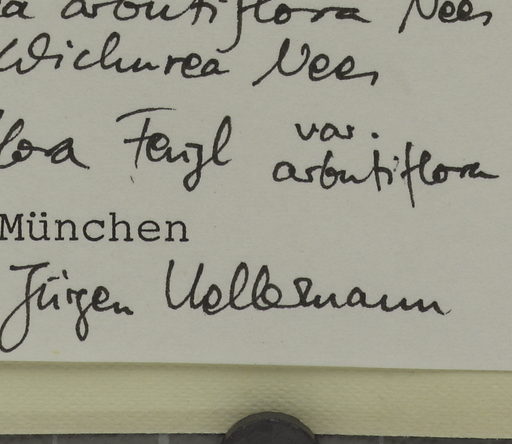 a arbutiflora Nees
Wichurea Nees
lora Fenzl var.
arbutiflora
München
Jürgen Kellermann